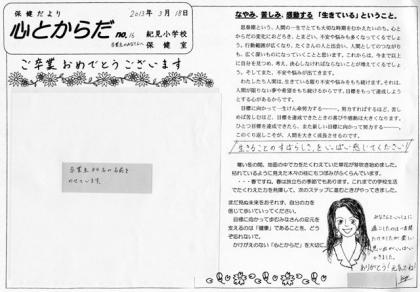 保健だより
心とからだ no.16
2013年3月18日
卒業生のみなさんへ
紀見小学校
保健室
ご卒業おめでとうございます
卒業生
のせています。
なやみ、苦しみ、感動する 「生きている」ということ。
思春期という、人間の一生でとても大切な時期をむかえたみなさん。心と
からだの変化におどろき、とまどい、不安や悩みも多くなってくるでしょう。
行動範囲が広くなり、たくさんの人と出会い、人間としてのつながり
も、広く深いものになっていくことと思います。これからは、今まで以上に
自分を見つめ、考え、決心しなければならないことが増えてくるでしょ
う。そしてまた、不安や悩みが出てきます。
わたしたち人間は、生きている限り不安や悩みをもち続けます。それは、
人間が限りない夢や希望をもち続けるからです。目標をもって達成しよう
とする心があるからです。
目標に向かって一生けん命努力する――、努力すればするほど、苦し
めば苦しむほど、目標を達成できたときの喜びや感動は大きくなります。
ひとつ目標を達成できたら、また新しい目標に向かって努力する――、
このくり返しこそが、人間を大きく成長させるのです。
生きることのすばらしさを、いっぱい感じてください!
暖い冬の間、地面の中で力をたくわえていた草花が芽吹き始めました。
枯れているように見えた木々の枝にもつぼみがふくらんでいます。
・・・春ですね。春は旅立ちの季節でもあります。これまでの学校生活
でたくわえた力を発揮して、次のステップに進むときがやってきました。
まだ見ぬ未来をおそれず、自分の力を
信じて歩いていってください。
目標に向かって歩むみなさんの足元を
支えるのは「健康」であることを、どう
ぞ忘れないで。
かけがえのない「心とからだ」を大切に。
みなさんといっしょに
過ごしたのは一年間
だけでしたが、楽しい
思い出がいっぱい
できました。
ありがとう!元気でね